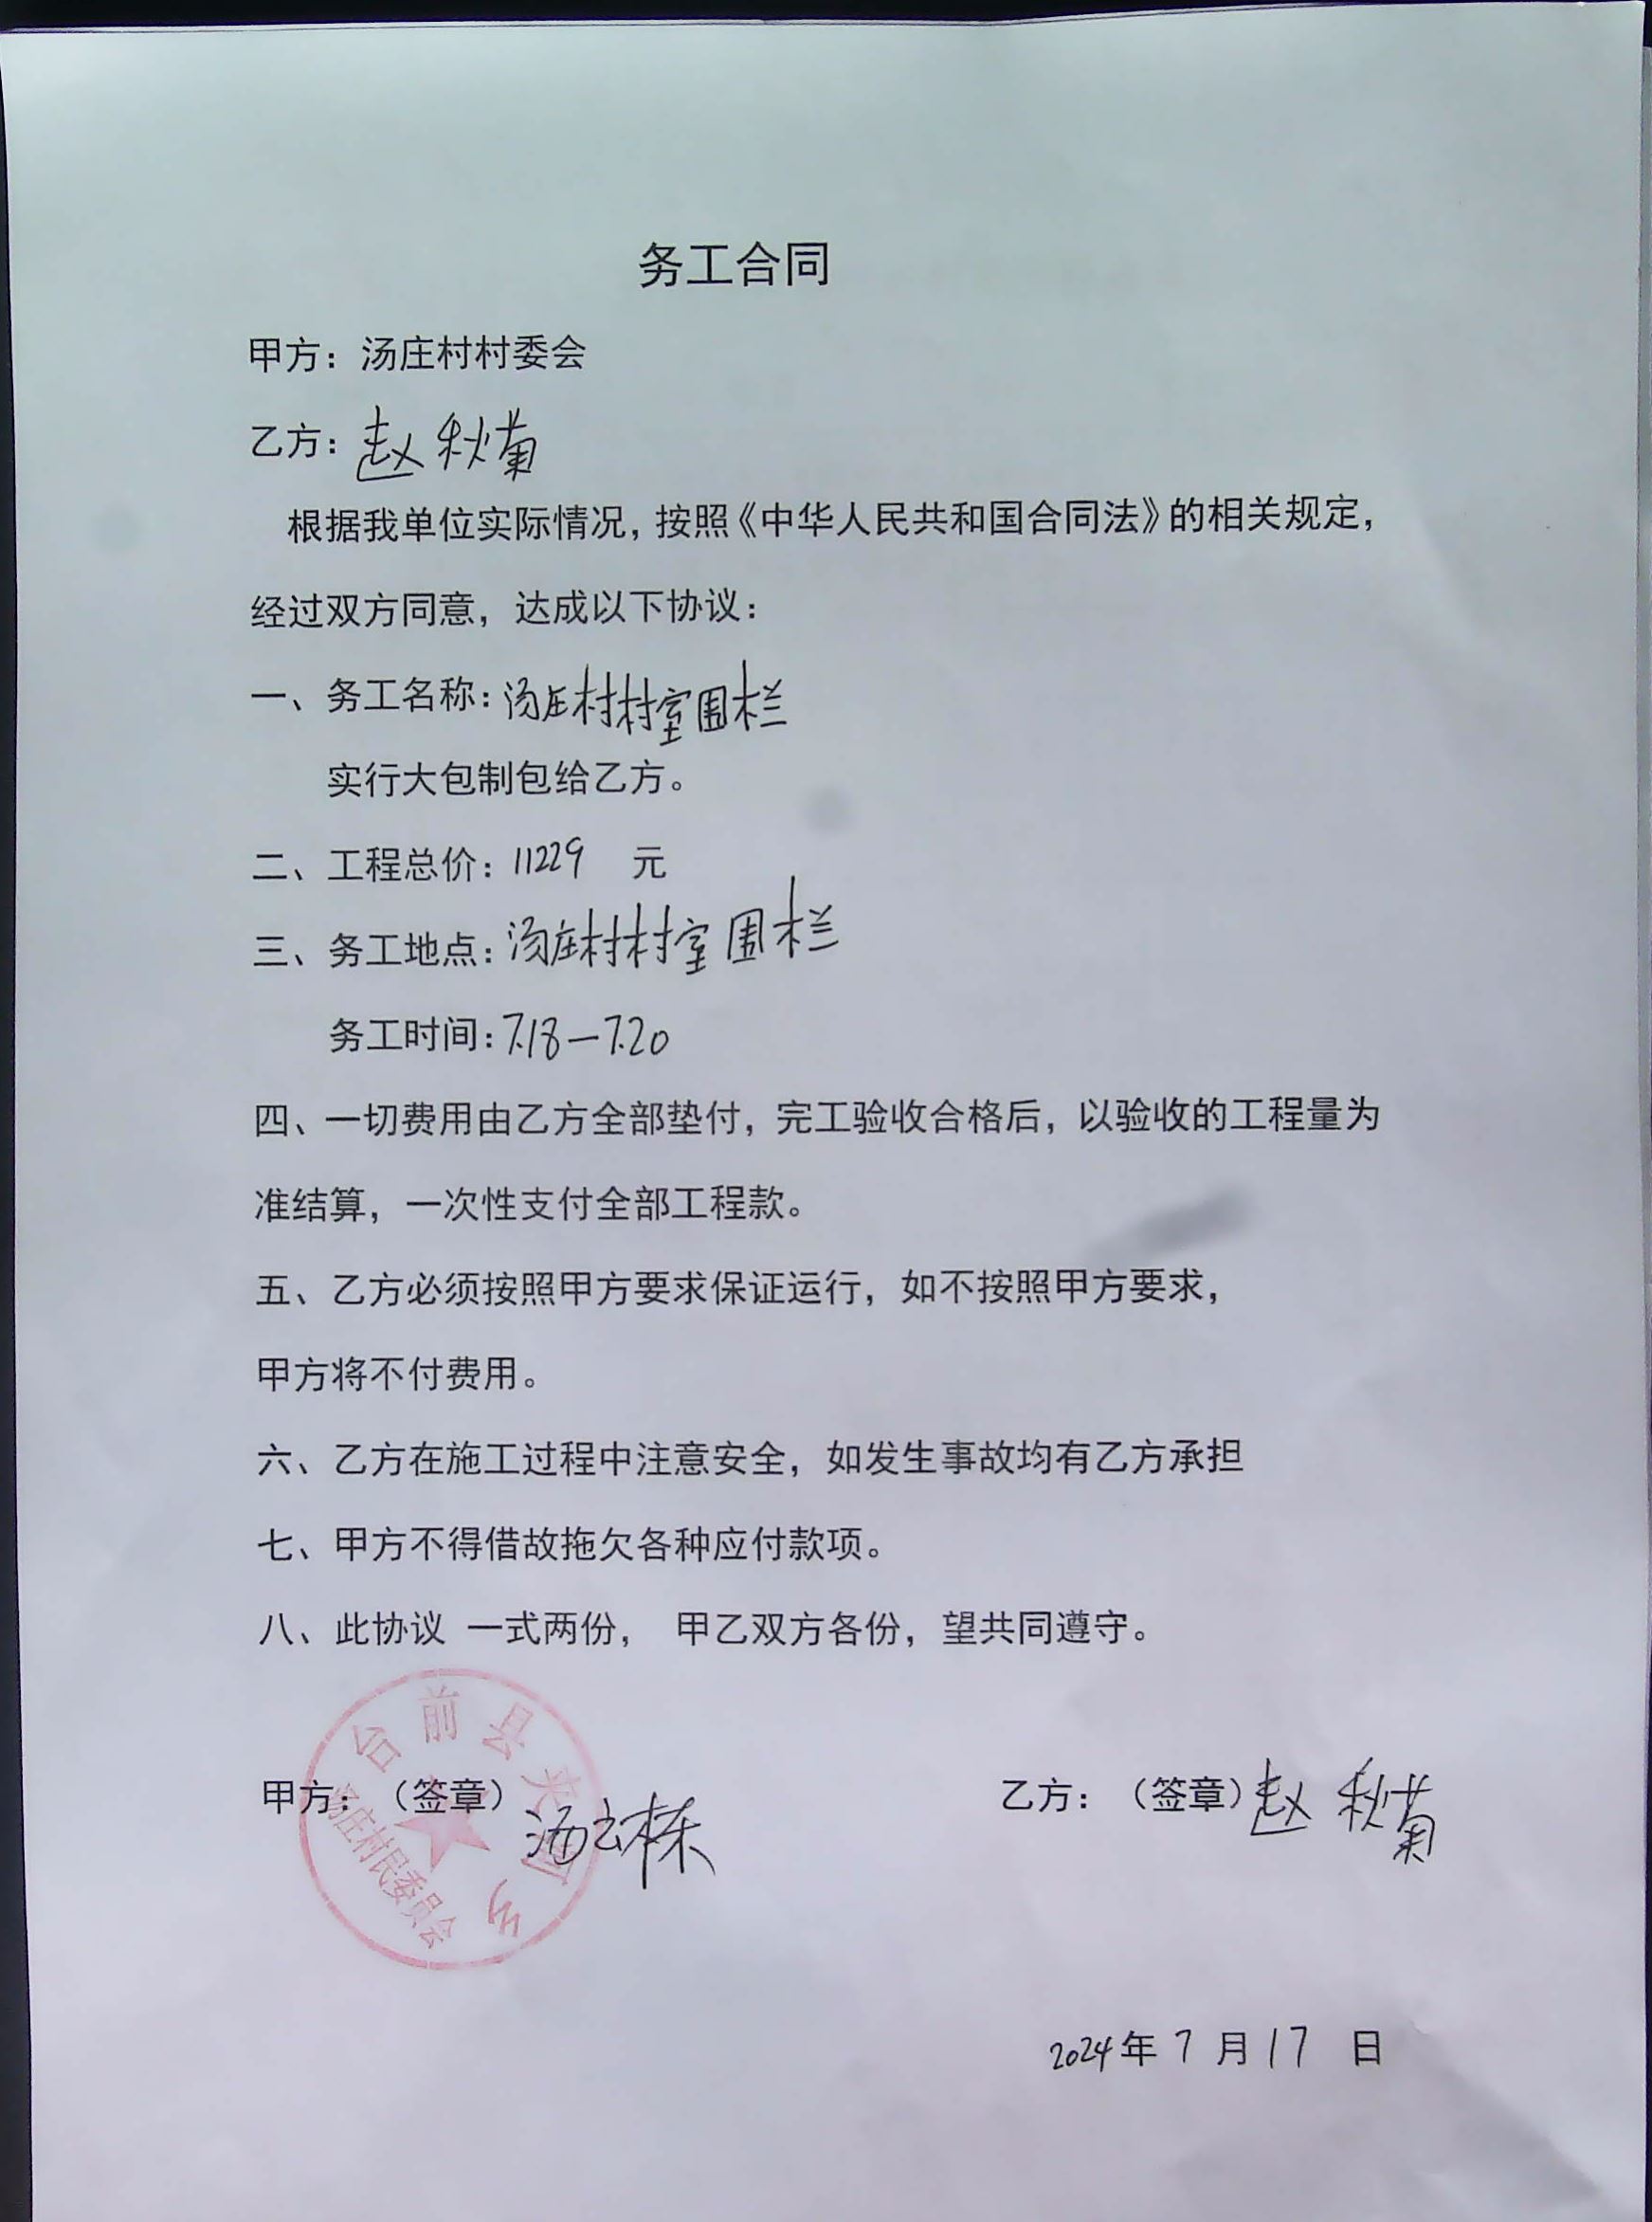 务工合同
甲方：汤庄村村委会
乙方：赵秋菊
根据我单位实际情况，按照《中华人民共和国合同法》的相关规定，
经过双方同意，达成以下协议：
一、务工名称：汤庄村村室围栏
实行大包制包给乙方。
二、工程总价：11229 元
三、务工地点：汤庄村村室围栏
务工时间：7.18—7.20
四、一切费用由乙方全部垫付，完工验收合格后，以验收的工程量为
准结算，一次性支付全部工程款。
五、乙方必须按照甲方要求保证运行，如不按照甲方要求，
甲方将不付费用。
六、乙方在施工过程中注意安全，如发生事故均有乙方承担
七、甲方不得借故拖欠各种应付款项。
八、此协议 一式两份， 甲乙双方各份，望共同遵守。
甲方：（签章）汤立栋
乙方：（签章）赵秋菊
台前县夹河乡
汤庄村民委员会
2024年7月17日